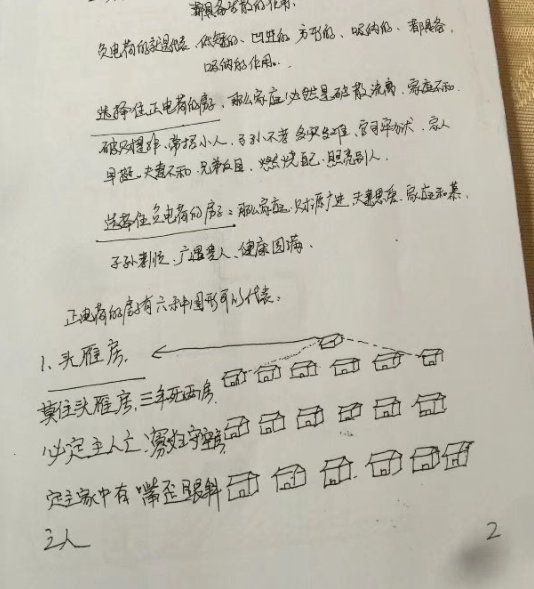 都具备发散的作用.
负电荷的就是矮、低矮的、凹进的、方形的、吸纳的、都具备.
吸纳的作用.
选择住正电荷的房子,那么家庭必然是破散流离,家庭不和.
破财损碎,常招小人、子孙不孝多灾多难,官司平伏,家人
早逝.夫妻不和.兄弟反目,燃烧自己,照亮别人.
选择住负电荷的房子:那么家庭.财源广进.夫妻恩爱.家庭和慕.
子孙孝顺.广遇贵人、健康圆满.
正电荷的房子有六种图形可以代表:
1、头雁房.
莫住头雁房,三年死两房.
必定主人亡,寡妇守空房
定主家中有嘴歪眼斜
之人
2